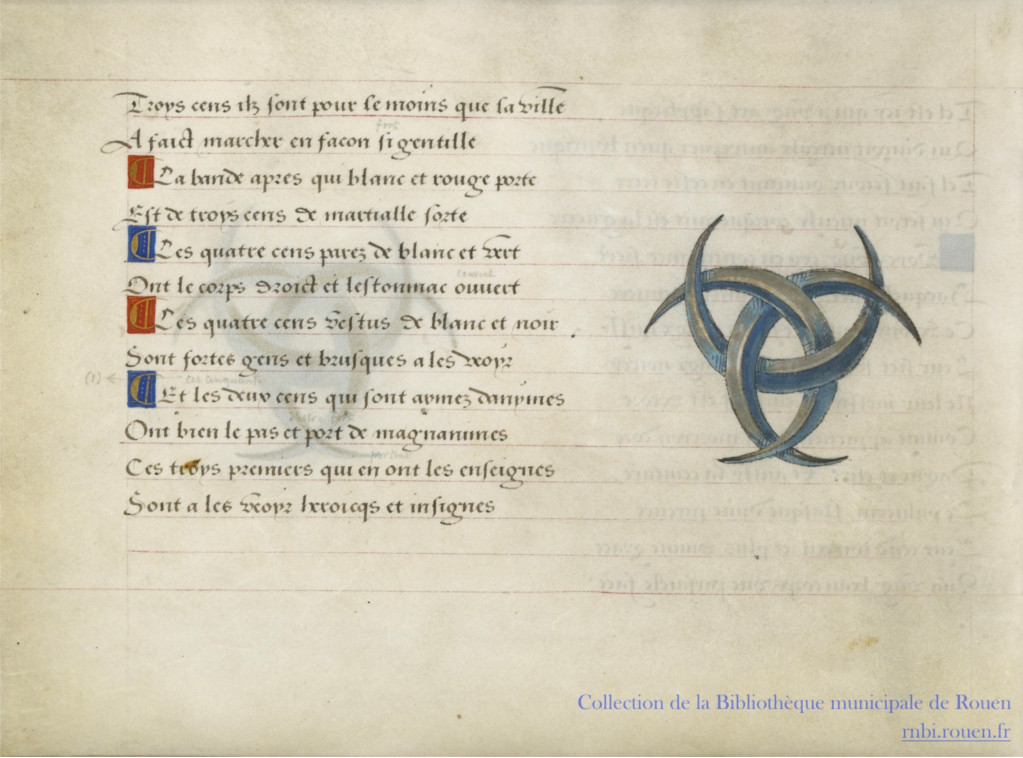 Troys cens ilz sont pour le moins que la ville
A faict marcher en facon si gentille
fort
La bande apres qui blanc et rouge porte
Est de troys cens de martialle sorte
Les quatre cens parez de blanc et vert
Ont le corps droict et lestommac ouvert
Les quatre cens vestus de blanc et noir
Sont fortes gens et brusques a les veoyr
(1)
Et les deux cens qui sont aymez danymes
Ont bien le pas et port de magnanimes
Ces troys premiers qui en ont les enseignes
Sont a les veoyr heroicqs et insignes
Collection de la Bibliothèque municipale de Rouen
rnbi.rouen.fr